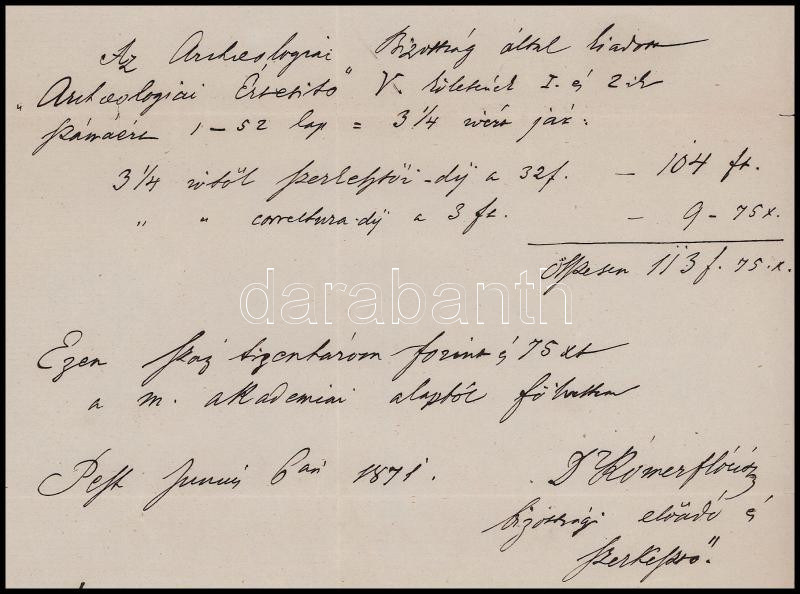 Az Archeologiai Bizottság által kiadott
"Archeologiai Értesitő" V kötetnek I. és 2-ik
számáért 1–52 lap = 3 1/4 ivért jár:
3 1/4 ivtől szerkesztői-díj a 32f. — 104 ft.
" " correctura-díj a 3 ft. — 9 – 75 x.
öszvesen 113 f. 75. x.
darabanth
Ezen száz tizenhárom forint és 75 xt
a m. akademiai alaptól fölvettem
Pest Junius 6án 1871.
Dr Rómer Flóris
bizottsági előadó és
szerkesztő.